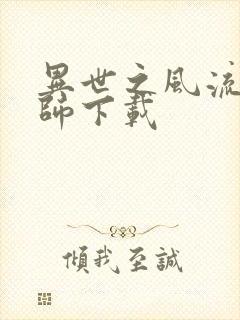 異世之風流
師下載
傾我至誠